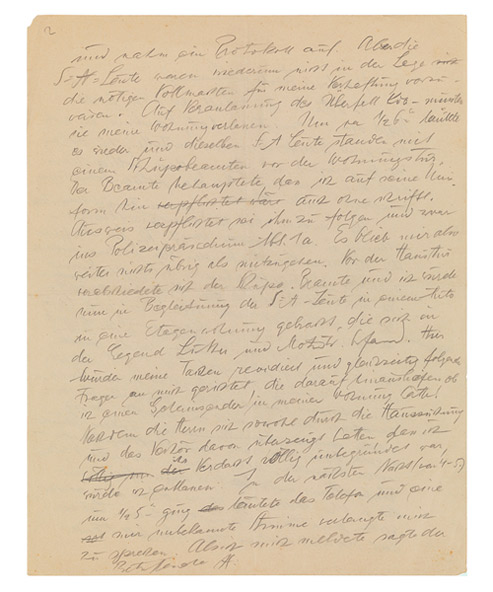 2
und nahm ein Protokoll auf. Aber die
S-A-Leute waren wiederum nicht in der Lage
die nötigen Vollmachten für meine Verhaftung vorzu-
weisen. Auf Veranlassung des Überfall Kdo. mussten
sie meine Wohnung verlassen. Um ca ½6 läutete
es wieder und dieselben S-A Leute standen mit
einem Schupobeamten vor der Wohnungstür.
Der Beamte behauptete, dass ich auf seine Uni-
form hin auch ohne schriftl.
Ausweis verpflichtet sei ihm zu folgen und zwar
ins Polizeipräsidium Abt. 1a. Es blieb mir also
weiter nichts übrig als mitzugehen. Vor der Haustür
verabschiedete sich der Schupo. Beamte und ich wurde
nun in Begleitung der S-A-Leute in einem Auto
in eine Etagenwohnung gebracht, die sich in
der Gegend und befand. Hier
wurden meine Taschen revidiert und gleichzeitig folgende
Fragen an mich gerichtet die darauf hinausliefen ob
ich einen Geheimsender in meiner Wohnung hätte.
Nachdem die Herrn sich sowohl durch die Haussuchung
und das Verhör davon überzeugt hatten dass
der Verdacht völlig unbegründet war,
wurde ich entlassen. In der nächsten Nacht (von 4-5)
um ½5 ging läutete das Telefon und eine
mir unbekannte Stimme verlangte mich
zu sprechen. Als ich mich meldete sagte der